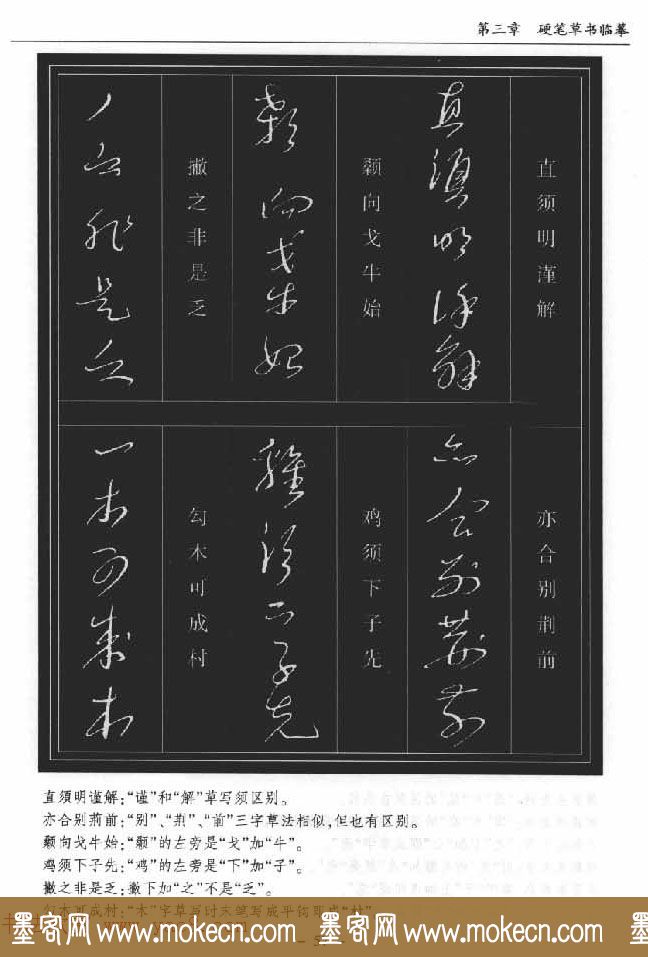 第三章 硬笔草书临摹
直须明谨解
颡向戈牛始
撇之非是乏
亦合别荆前
鸡须下子先
勾木可成村
直须明谨解:“谨”和“解”草写须区别。
亦合别荊前:“别”、“荊”、“前”三字草法相似,但也有区别。
颡向戈牛始:“颡”的左旁是“戈”加“牛”。
鸡须下子先:“鸡”的左旁是“下”加“子”。
撇之非是乏:撇下加“之”不是“乏”。
勾木可成村:“木”字草写时末笔写成平钩即成“村”
墨客网 www.mokecn.com 墨客网 www.mokecn.com